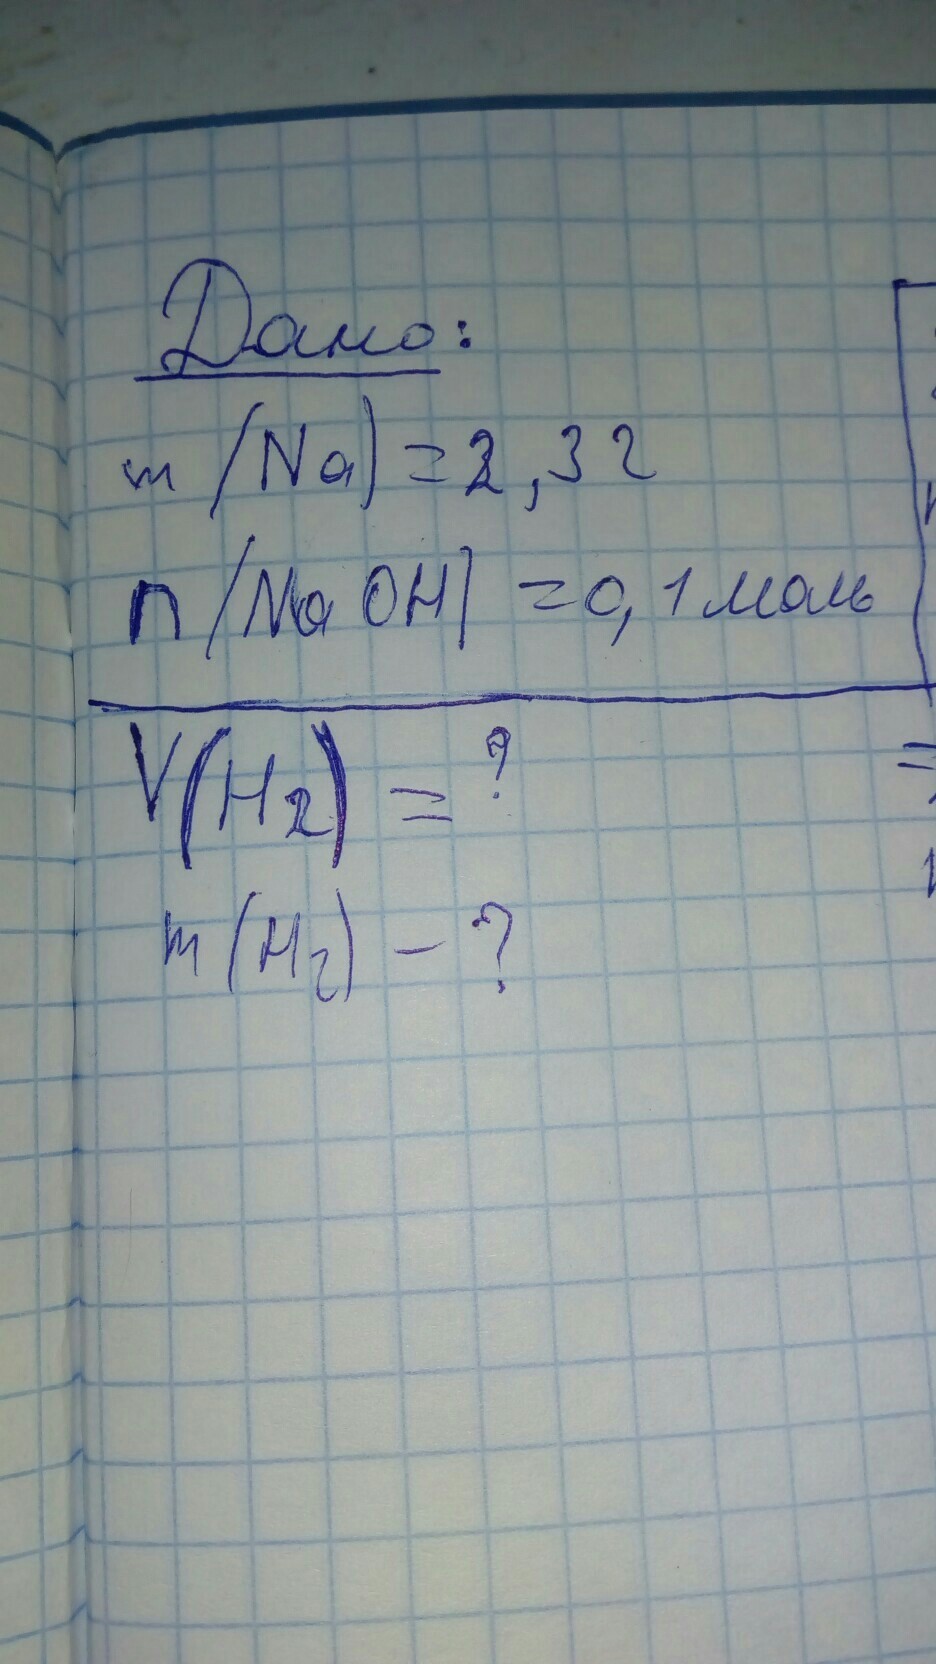 Дано:
m (Na) = 2,3 г
n (NaOH) = 0,1 моль
V(H2) = ?
m (H2) - ?